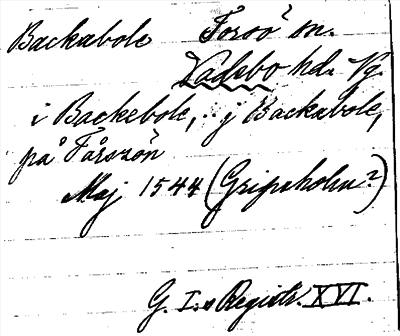 Backabole Forsö sn.
Vadsbo hd. Vg.
i Backebole, .. j Backabole,
på Fårszön
Maj 1544 (Gripsholm?)
G. I:s Registr. XVI.